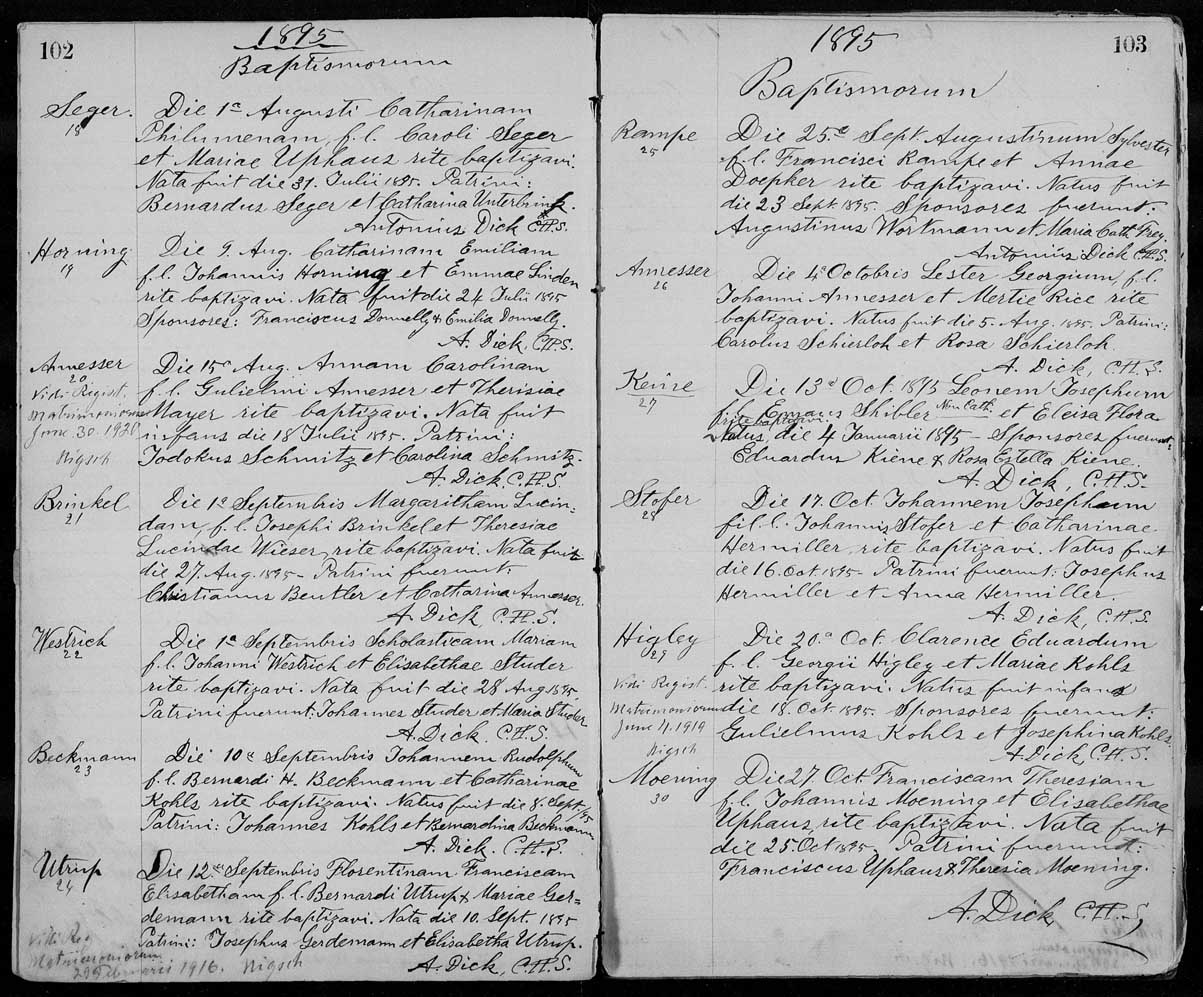 102
1895
Baptismorum
Seger.
18
Die 1a Augusti Catharinam
Philumenam, f. l. Caroli Seger
et Mariae Uphaus rite baptizavi.
Nata fuit die 31. Julii 1895. Patrini:
Bernardus Seger et Catharina Unterbrink.
Antonius Dick C.PP.S.
Horning
19
Die 9. Aug. Catharinam Emiliam
f. l. Johannis Horning et Emmae Linden
rite baptizavi. Nata fuit die 24 Julii 1895
Sponsores: Franciscus Donnelly & Emilia Donnelly.
A. Dick. C.PP.S.
Annesser
20
Vidi Regist.
Matrimoniorum
June 30. 1920
Nigsch
Die 15a Aug. Annam Carolinam
f. l. Gulielmi Annesser et Therisiae
Mayer rite baptizavi. Nata fuit
infans die 18 Julii 1895. Patrini:
Jodokus Schmitz et Carolina Schmitz.
A. Dick C.PP.S
Brinkel
21
Die 1a Septembris Margaritham Lucin-
dam, f. l. Josephi Brinkel et Theresiae
Lucindae Wieser, rite baptizavi. Nata fuit
die 27. Aug. 1895 - Patrini fuerunt:
Christianus Beutler et Catharina Annesser.
A. Dick, C.PP.S.
Westrich
22
Die 1a Septembris Scholasticam Mariam
f. l. Johanni Westrich et Elisabethae Studer
rite baptizavi. Nata fuit die 28 Aug 1895
Patrini fuerunt: Johannes Studer et Maria Studer
A. Dick. C.PP.S.
Beckmann
23
Die 10a Septembris Johannem Rudolphum
f. l. Bernardi H. Beckmann et Catharinae
Kohls rite baptizavi. Natus fuit die 8. Sept/95
Patrini: Johannes Kohls et Bernardina Beckmann
A. Dick. C.PP.S.
Utrup
24
Vidi Reg
Matrimoniorum
29 Februarii 1916. Nigsch
Die 12. Septembris Florentinam Franciscam
Elisabetham f. l. Bernardi Utrup & Mariae Ger=
demann rite baptizavi. Nata die 10. Sept. 1895
Patrini: Josephus Gerdemann et Elisabetha Utrup.
A. Dick, C.PP.S.
103
1895
Baptismorum
Rampe
25
Die 25.a Sept Augustinum Sylvester
f. l. Francisci Rampe et Annae
Doepker rite baptizavi. Natus fuit
die 23 Sept 1895. Sponsores fuerunt:
Augustinus Wortmann et Maria Cath. Frey.
Antonius Dick C.PP.S.
Annesser
26
Die 4a Octobris Lester Georgium, f. l.
Johanni Annesser et Mertie Rice rite
baptizavi. Natus fuit die 5. Aug. 1895. Patrini:
Carolus Schierloh et Rosa Schierloh.
A. Dick, C.PP.S.
Keine
27
Die 13a Oct. 1895 Leonem Josephum
f. l. Emaus Shibler Non Cath. et Eleisa Flora
rite baptizavi.
Natus, die 4 Januarii 1895 - Sponsores fuerunt:
Eduardus Kiene & Rosa Estella Kiene.
A. Dick, C.PP.S.
Stofer
28
Die 17. Oct. Johannem Josephum
fil. l. Johannis Stofer et Catharinae
Hermiller, rite baptizavi. Natus fuit
die 16. Oct 1895 - Patrini fuerunt: Josephus
Hermiller et Anna Hermiller.
A. Dick, C.PP.S
Higley
29
Vidi Regist.
Matrimoniorum
June 4. 1919
Nigsch
Die 20.a Oct. Clarence Eduardum
f. l. Georgii Higley et Mariae Kohls
rite baptizavi. Natus fuit infans
die 18. Oct. 1895. Sponsores fuerunt:
Gulielmus Kohls et Josephina Kohls.
A. Dick, C.PP.S.
Moening
30
Die 27. Oct. Franciscam Theresiam
f. l. Johannis Moening et Elisabethae
Uphaus, rite baptizavi. Nata fuit
die 25. Oct 1895. Patrini fuerunt:
Franciscus Uphaus & Theresia Moening.
A. Dick, C.PP.S